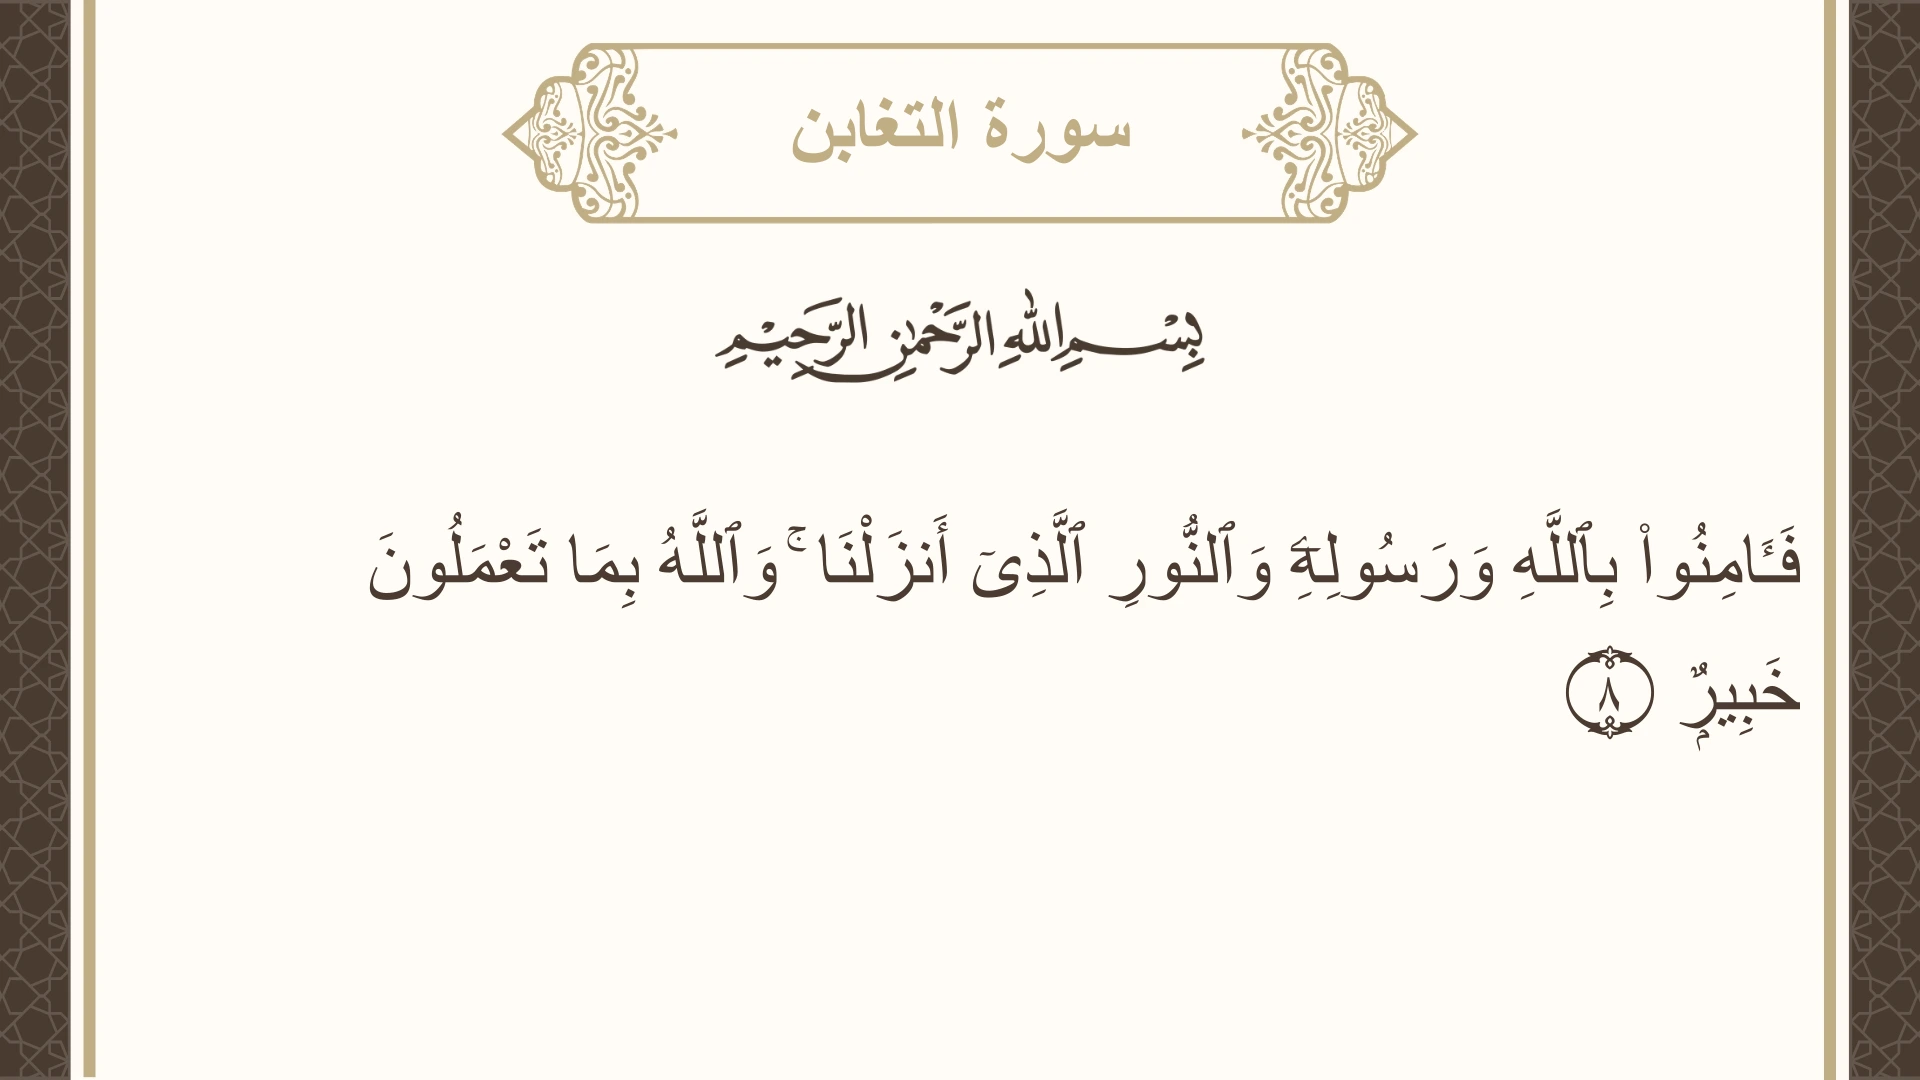 سورة التغابن
بِسْمِ اللهِ الرَّحْمٰنِ الرَّحِيْمِ
فَـَٔامِنُوا۟ بِٱللَّهِ وَرَسُولِهِۦ وَٱلنُّورِ ٱلَّذِىٓ أَنزَلْنَا ۚ وَٱللَّهُ بِمَا تَعْمَلُونَ
خَبِيرٌۭ ٨